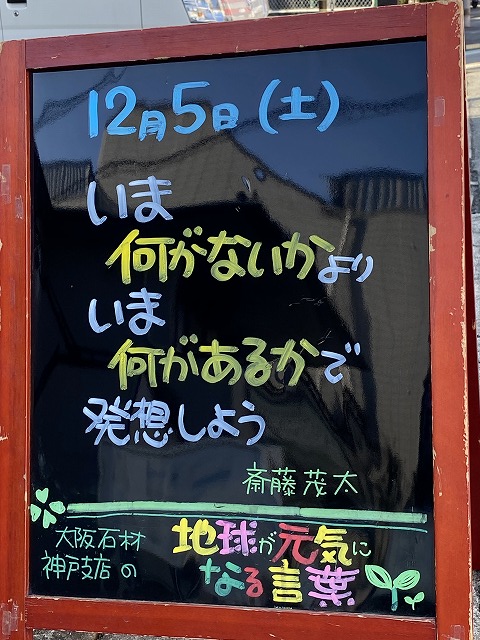 12月5日(土)
いま
何がないかより
いま
何があるかで
発想しよう
斎藤茂太
大阪石材
神戸支店の
地球が元気に
なる言葉